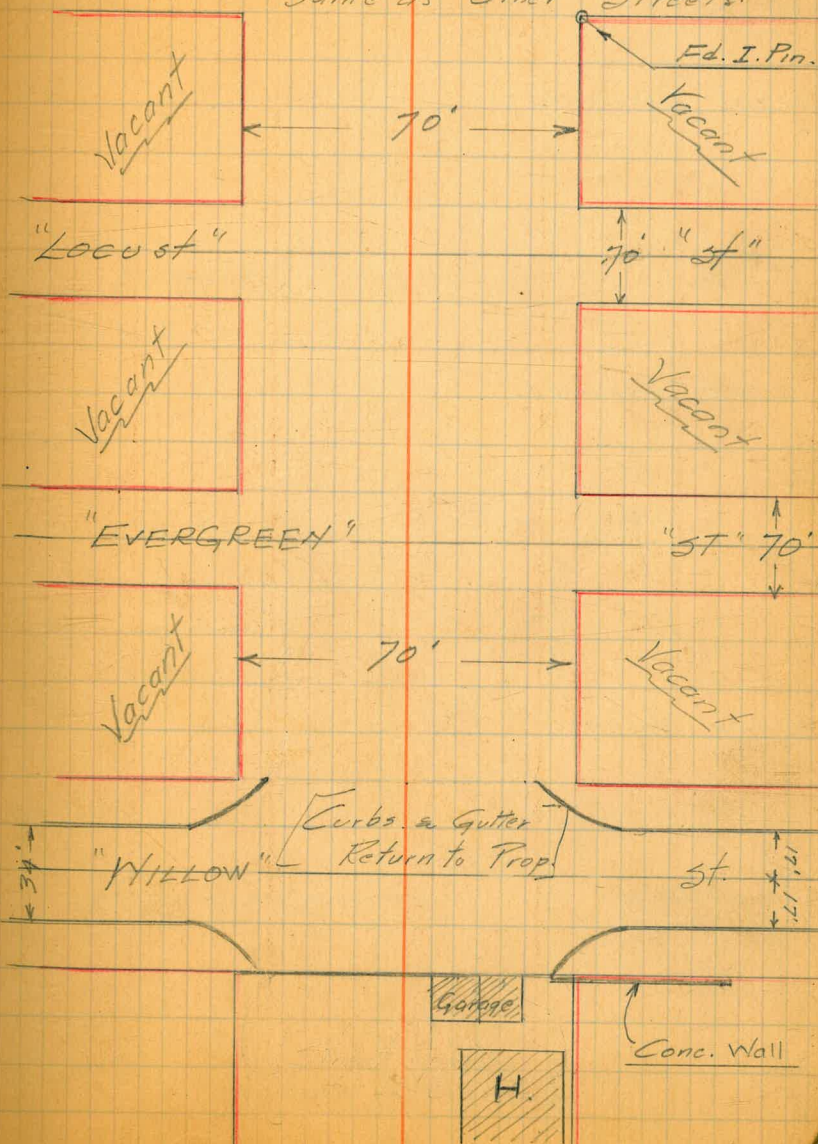 Same as Other Streets.
Fd. I. Pin.
Vacant
70'
Vacant
"Locust"
70' "St"
Vacant
Vacant
"EVERGREEN"
"ST" 70'
Vacant
70'
Vacant
Curbs & Gutter
Return to Prop.
34'
"WILLOW"
St.
17'
17'
Garage
Conc. Wall
H.